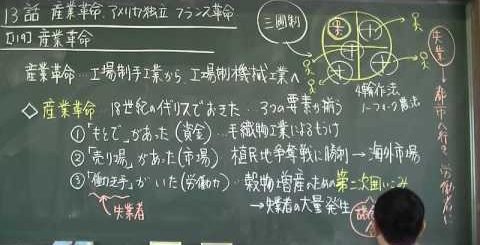 13話 産業革命、アメリカ独立 フランス革命
[119] 産業革命
産業革命…工場制手工業から、工場制機械工業へ
◇産業革命…18世紀の イギリスでおきた…3つの要素が揃う
①「もとで」があった(資金)…毛織物工業によるもうけ
②「売り場」があった(市場)…植民地争奪戦に勝利→海外市場
③「働き手」がいた(労働力)…穀物増産のための第二次囲いこみ
失業者
→失業者の大量発生
三圃制
4輪作法
ノーフォーク農法
失業→都市へ行き労働者に